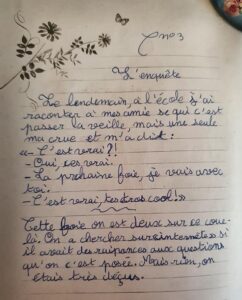 n°3
L'enquête
Le lendemain, à l'école j'ai
raconter à mes amie se qui c'est
passer la veille, mais une seule
ma crue et m'a dit:
«- C'est vrai?!
- Oui, ces vrai.
- La prochaine fois, je vais avec
toi.
- C'est vrai, tes trop cool!»
Cette fois on est deux sur ce cou-
là. On a chercher sur internet si
il avait des raiponces aux questions
qu'on c'est posée. Mais rien, on
étais très déçus.